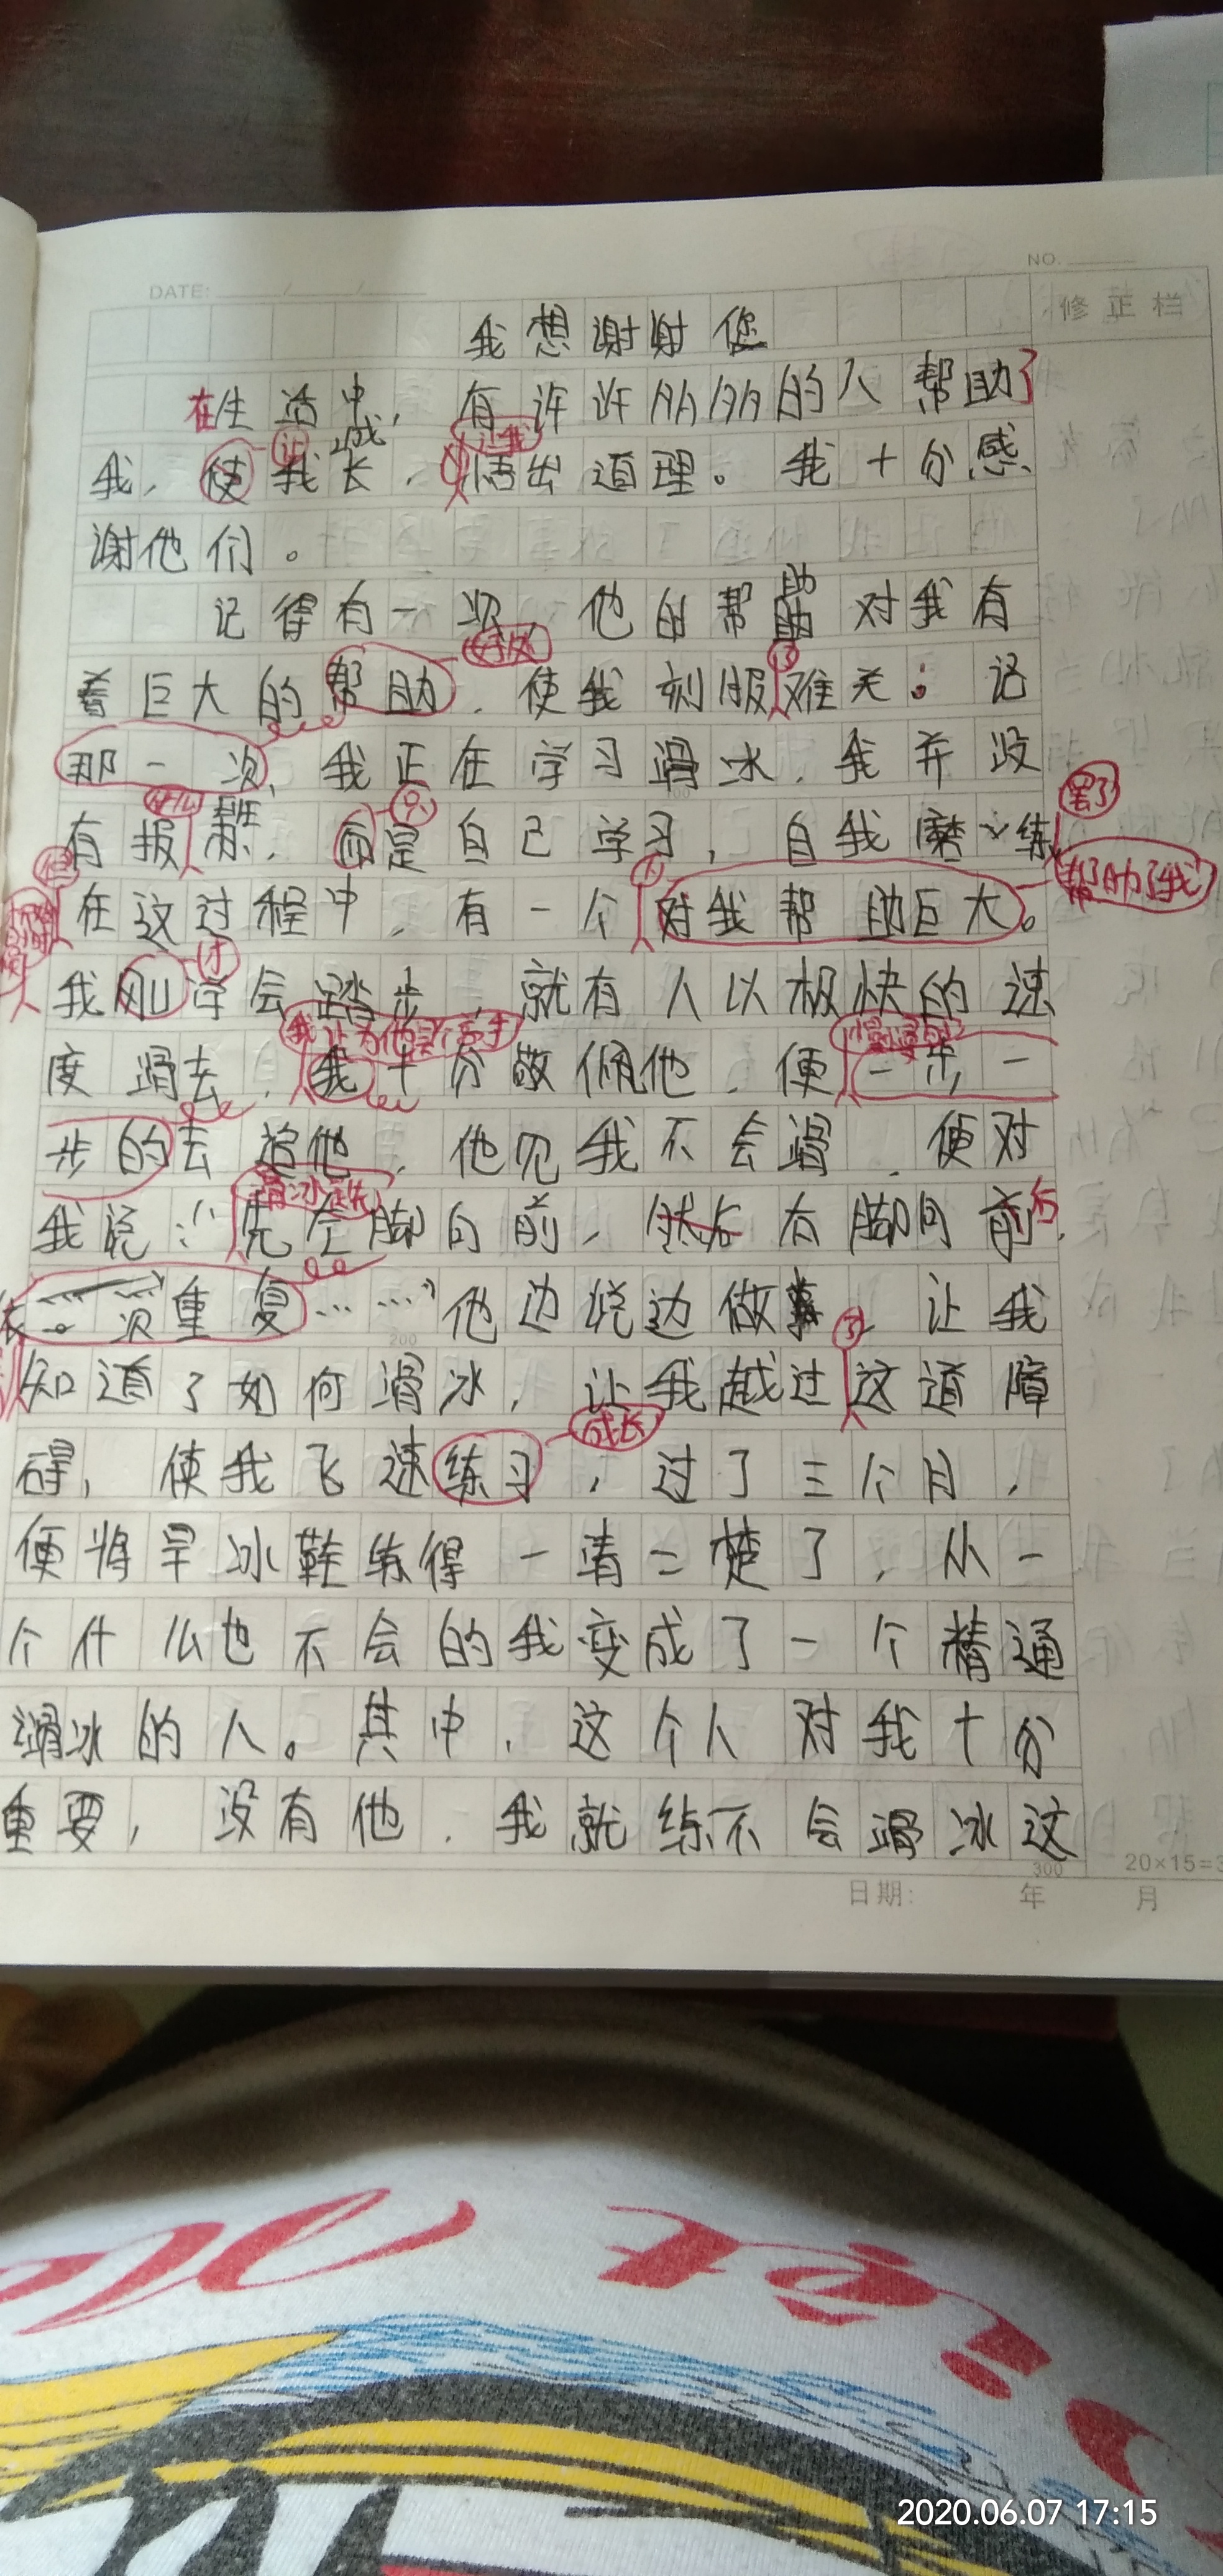 NO.
DATE: / /
修正栏
我想谢谢您
在生活中，有许许多多的人帮助了
让 成 让我
我，使我长，悟出道理。我十分感
谢他们。
记得有一次，他的帮助对我有
好处 了
着巨大的帮助，使我刻服难关：记
那一次，我正在学习滑冰，我并没
什么 只 罢了
有报 班，而是自己学习，自我磨练
但 人 帮助了我
在这过程中，有一个对我帮助巨大。
才
我刚学会踏步，就有人以极快的速
我认为他是个高手 慢慢的
度滑去，我十分敬佩他，便一步一
步的去追他，他见我不会滑，便对
滑冰是先 后
我说：“先左脚向前，然后右脚向前，
依次重复……”他边说边做 让我
了
知道了如何滑冰，让我越过这道障
成长
碍，使我飞速练习，过了三个月，
便将旱冰鞋练得一清二楚了，从一
个什么也不会的我变成了一个精通
滑冰的人。其中，这个人对我十分
重要，没有他，我就练不会滑冰这
200
300
20×15=3
日期： 年 月
2020.06.07 17:15